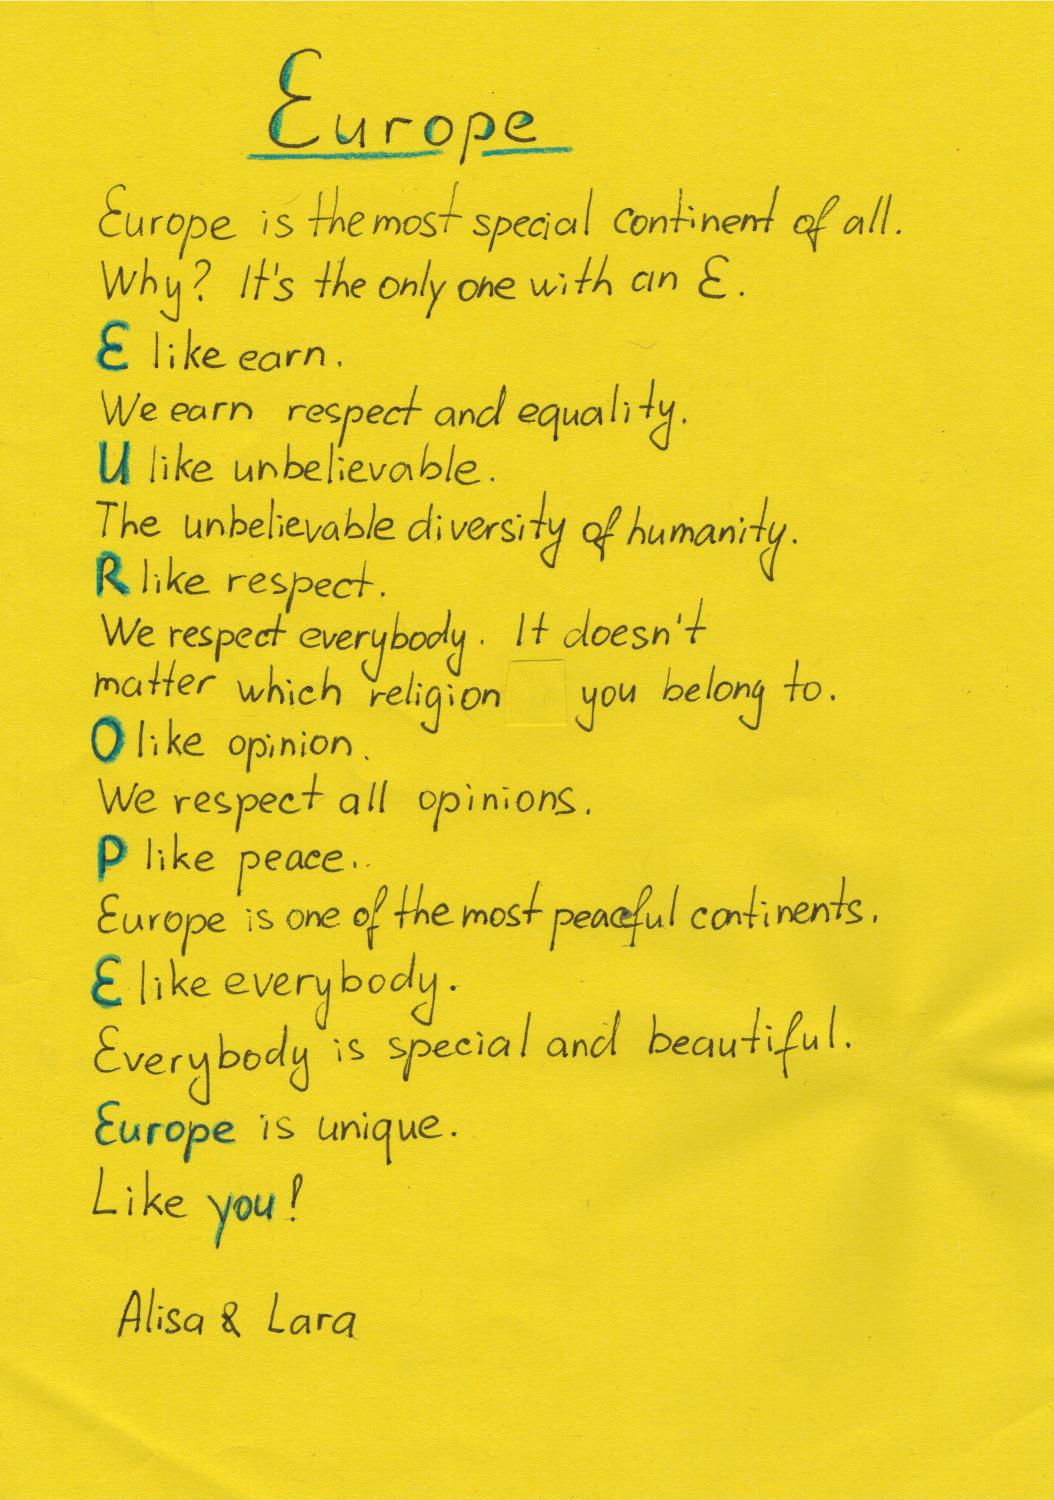 Europe
Europe is the most special continent of all.
Why? It's the only one with an E.
E like earn.
We earn respect and equality.
U like unbelievable.
The unbelievable diversity of humanity.
R like respect.
We respect everybody. It doesn't
matter which religion you belong to.
O like opinion.
We respect all opinions.
P like peace.
Europe is one of the most peaceful continents.
E like everybody.
Everybody is special and beautiful.
Europe is unique.
Like you!
Alisa & Lara